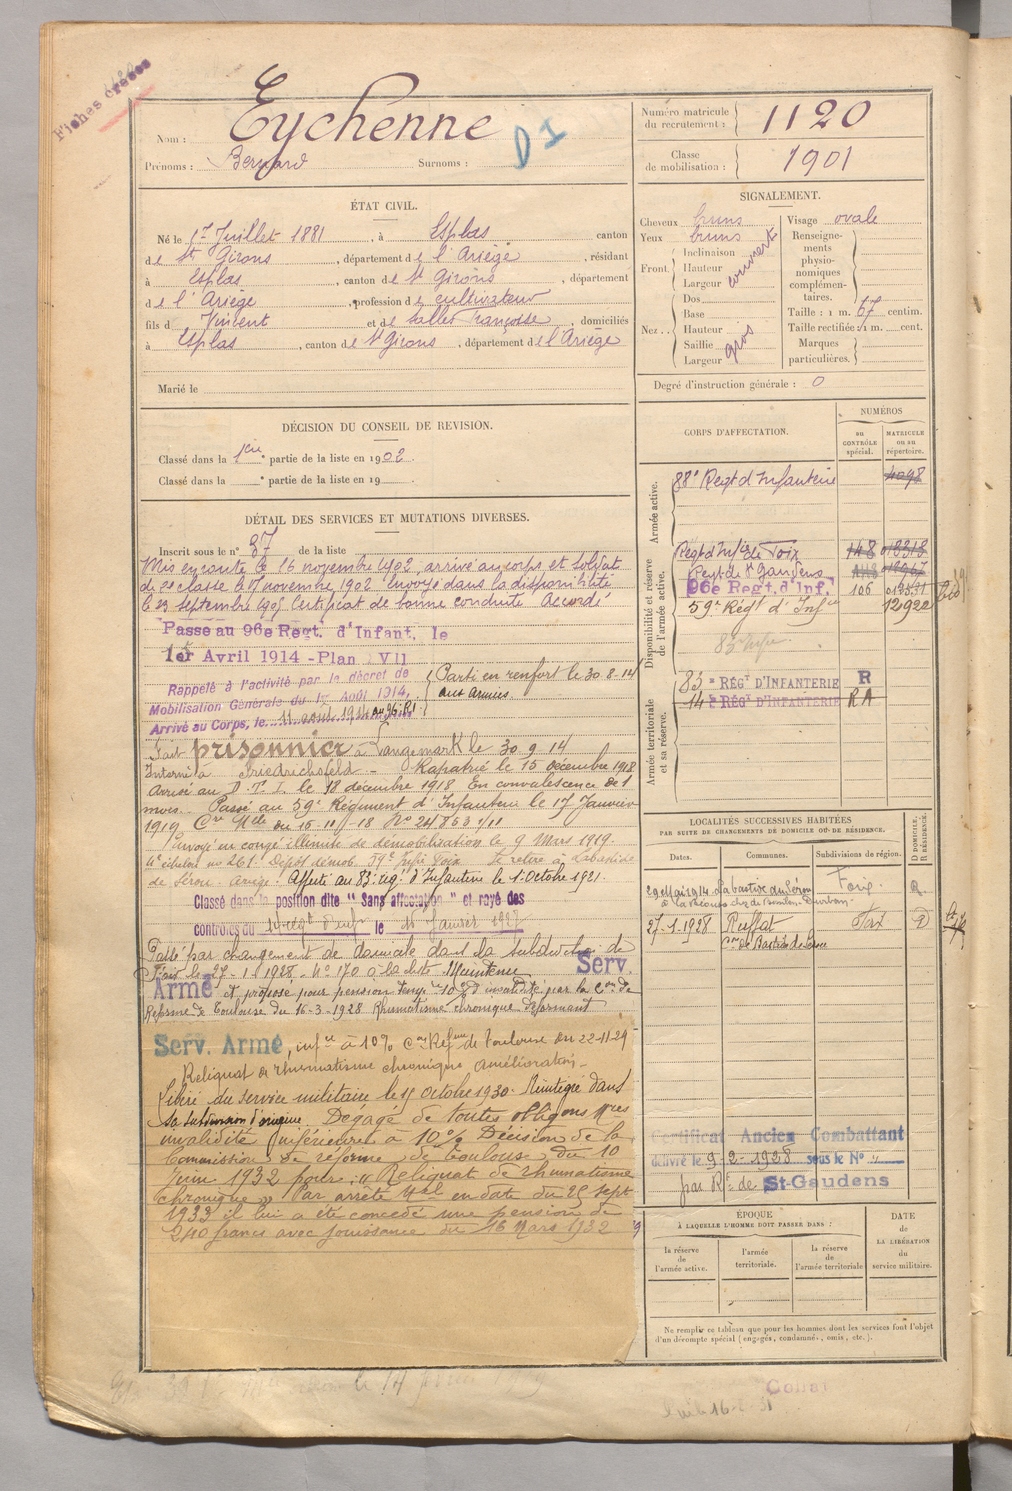 Fiches
Eychenne
Nom :
Prénoms : Bernard Surnoms :
D1
Numéro matricule du recrutement : 1120
Classe de mobilisation : 1901
ÉTAT CIVIL.
Né le 1er Juillet 1881, à Esplas canton
de St Girons, département de l'Ariège, résidant
à Esplas, canton de St Girons, département
de l'Ariège, profession de cultivateur
fils de Vincent et de Françoise, domiciliés
à Esplas, canton de St Girons, département de l'Ariège
Marié le
SIGNALEMENT.
Cheveux bruns
Yeux bruns
Front. Inclinaison
Hauteur
Largeur
couvert
Nez. Dos
Base
Hauteur
Saillie
Largeur
gros
Visage ovale
Renseignements physionomiques complémentaires.
Taille : 1 m. 67 centim.
Taille rectifiée : 1 m. cent.
Marques particulières.
Degré d'instruction générale : 0
DÉCISION DU CONSEIL DE REVISION.
Classé dans la 1ère partie de la liste en 1902.
Classé dans la partie de la liste en 19
DÉTAIL DES SERVICES ET MUTATIONS DIVERSES.
Inscrit sous le n° 87 de la liste
Mis en route le 16 novembre 1902, arrivé au corps et soldat
de 2e classe le 17 novembre 1902 envoyé dans la disponibilité
le 23 septembre 1905 Certificat de bonne conduite Accordé
Passe au 96e Regt. d'Infant. le
1er Avril 1914 - Plan VII
Rappelé à l'activité par le décret de
Mobilisation Générale du 1er Août 1914,
Arrivé au Corps, le 11 août 1914 au 96e RI
Parti en renfort le 30-8-14
aux armées
Fait prisonnier à Langemark le 30 9 14
Interné à Friedrichsfeld - Rapatrié le 15 décembre 1918
Arrivé au D.T.I. le 18 décembre 1918 En convalescence de 1
mois. Passé au 59e Régiment d'Infanterie le 17 Janvier
1919 Cre Mlle du 15-11-18 No 24853 1/11
Envoyé en congé illimité de démobilisation le 9 Mars 1919.
4e échelon no 261. Dépôt démob. 59e Infie Foix. Se retire à Labastide
de Sérou. Ariège. Affecté au 83e rég. d'Infanterie le 1. Octobre 1921.
Classé dans la position dite "Sans affectation" et rayé des
contrôles du 14 regt d'infie le 15 Janvier 1927
Passé par changement de domicile dans la subdivision de
Foix le 27-1-1928 - No 170 à la liste - Maintenu Serv.
Armé et proposé pour pension temp re 10% d'invalidité par la Con de
Réforme de Toulouse du 16-3-1928 Rhumatisme chronique déformant
Serv. Armé, inf re à 10% Con Réf me de Toulouse du 22-11-29
Reliquat de rhumatisme chronique amélioration
Libéré du service militaire le 15 Octobre 1930. Réintégré dans
sa subdivision d'origine. Dégagé de toutes oblig ons mres
invalidité inférieure à 10% Décision de la
Commission de réforme de Toulouse du 10
Juin 1932 pour: "Reliquat de rhumatisme
chronique". Par arrêté Mel en date du 25 Sept
1933 il lui a été concédé une pension de
240 francs avec jouissance du 16 Mars 1932
CORPS D'AFFECTATION.
NUMÉROS
au CONTRÔLE spécial.
MATRICULE ou au répertoire.
Armée active.
88e Regt d'Infanterie 4098
Disponibilité et réserve de l'armée active.
Regt d'Infie de Foix 148 01831
Regt de St Gaudens
96e Regt. d'Inf. 106
59e Régt d'Infie 12922
83e Infie.
Armée territoriale et sa réserve.
83e RÉGt D'INFANTERIE R
14e RÉGt D'INFANTERIE RA
LOCALITÉS SUCCESSIVES HABITÉES
PAR SUITE DE CHANGEMENTS DE DOMICILE OU DE RÉSIDENCE.
Dates. Communes. Subdivisions de région. D DOMICILE. R RÉSIDENCE.
29 Mai 1914 Labastide du Sérou Foix R.
27-1-1928 Ruffat Foix D
Certificat Ancien Combattant
délivré le 9-2-1928 sous le No
par Rt de St-Gaudens
ÉPOQUE
À LAQUELLE L'HOMME DOIT PASSER DANS :
la réserve de l'armée active.
l'armée territoriale.
la réserve de l'armée territoriale
DATE DE LA LIBÉRATION du service militaire.
Ne remplir ce tableau que pour les hommes dont les services font l'objet
d'un décompte spécial (engagés, condamnés, omis, etc.).